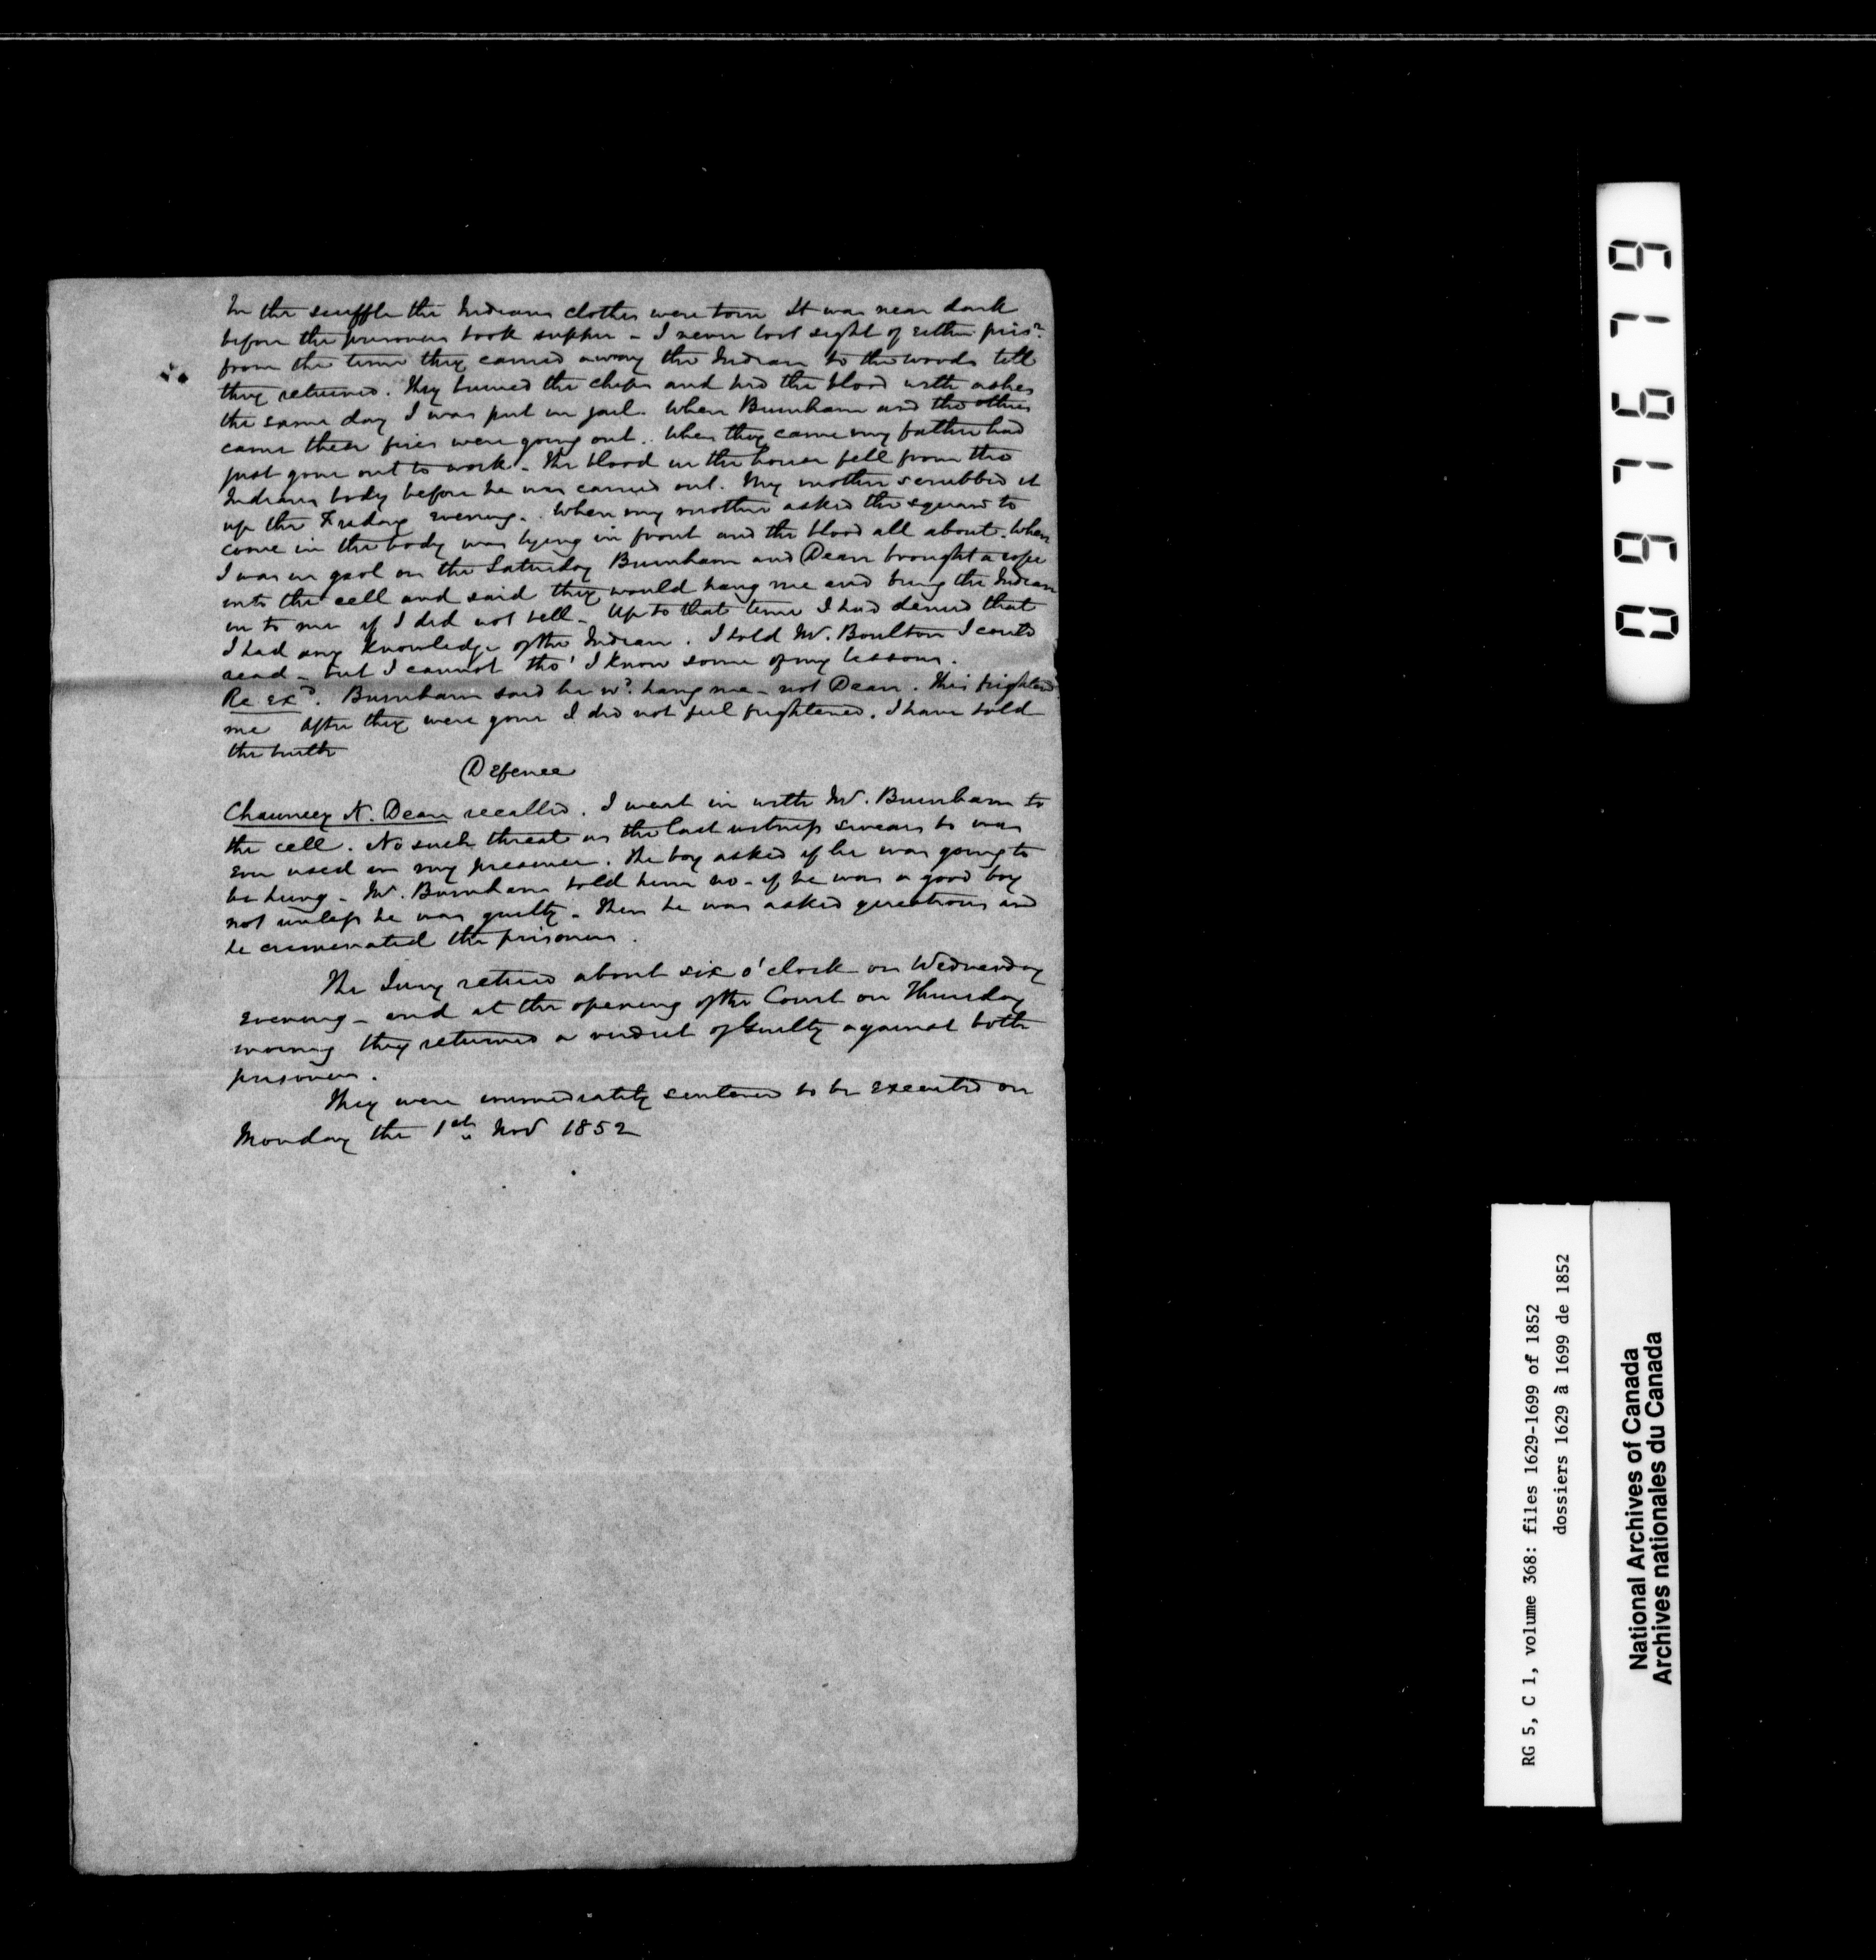 In the scuffle the Indians clothes were torn It was near dark
before the prisoners took supper - I never lost sight of either prisr.
from the time they carried away the Indian to the woods till
they returned. They burned the chips and hid the blood with ashes
the same day I was put in jail. When Burnham and the others
came these fires were going out. When they came my father had
just gone out to work - The blood in the house fell from the
Indians body before he was carried out. My mother scrubbed it
up the Friday evening. When my mother asked the squaw to
come in the body was lying in front and the blood all about. When
I was in gaol on the Saturday Burnham and Dean brought a rope
into the cell and said they would hang me and bring the Indian
in to me if I did not tell - Up to that time I had denied that
I had any knowledge of the Indian. I told Mr. Boulton I could
read - but I cannot tho' I know some of my lessons.
Re Exd. Burnham said he wd. hang me - not Dean. This frightened
me After they were gone I did not feel frightened. I have told
the truth
Defence
Chauncey N. Dean recalled. I went in with Mr. Burnham to
the cell. No such threat as the last witness swears to was
ever used in my presence. The boy asked if he was going to
be hung - Mr. Burnham told him no - if he was a good boy
not unless he was guilty - Then he was asked questions and
he criminated the prisoners.
The Jury retired about six o'clock on Wednesday
evening - and at the opening of the Court on Thursday
morning they returned a verdict of Guilty against both
prisoners.
They were immediately sentenced to be executed on
Monday the 1st Nov 1852
097679
RG 5, C 1, volume 368: files 1629-1699 of 1852
dossiers 1629 à 1699 de 1852
National Archives of Canada
Archives nationales du Canada